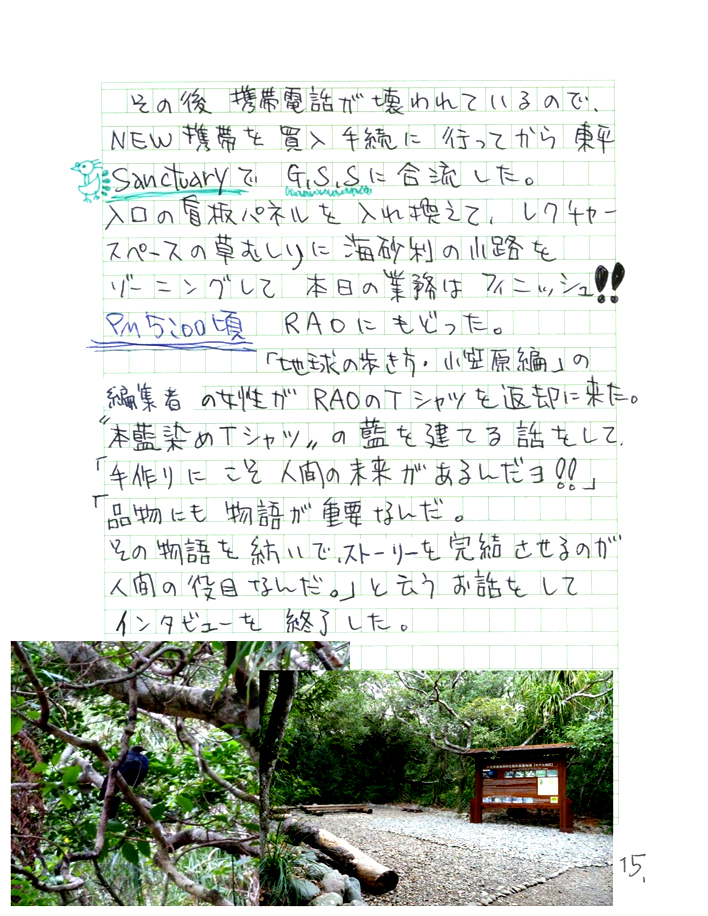 その後 携帯電話が壊われているので、
NEW携帯を買入手続に行ってから東平
Sanctuaryで G.S.Sに合流した。
入口の看板パネルを入れ換えて、レクチャー
スペースの草むしりに海砂利の小路を
ゾーニングして 本日の業務はフィニッシュ!!
PM5:00頃 RAOにもどった。
「地球の歩き方・小笠原編」の
編集者の女性がRAOのTシャツを返却に来た。
〝本藍染めTシャツ〟の藍を建てる話をして、
「手作りにこそ人間の未来があるんだヨ!!」
「品物にも物語が重要なんだ。
その物語を紡いで、ストーリーを完結させるのが
人間の役目なんだ。」と云うお話をして
インタビューを終了した。
15.